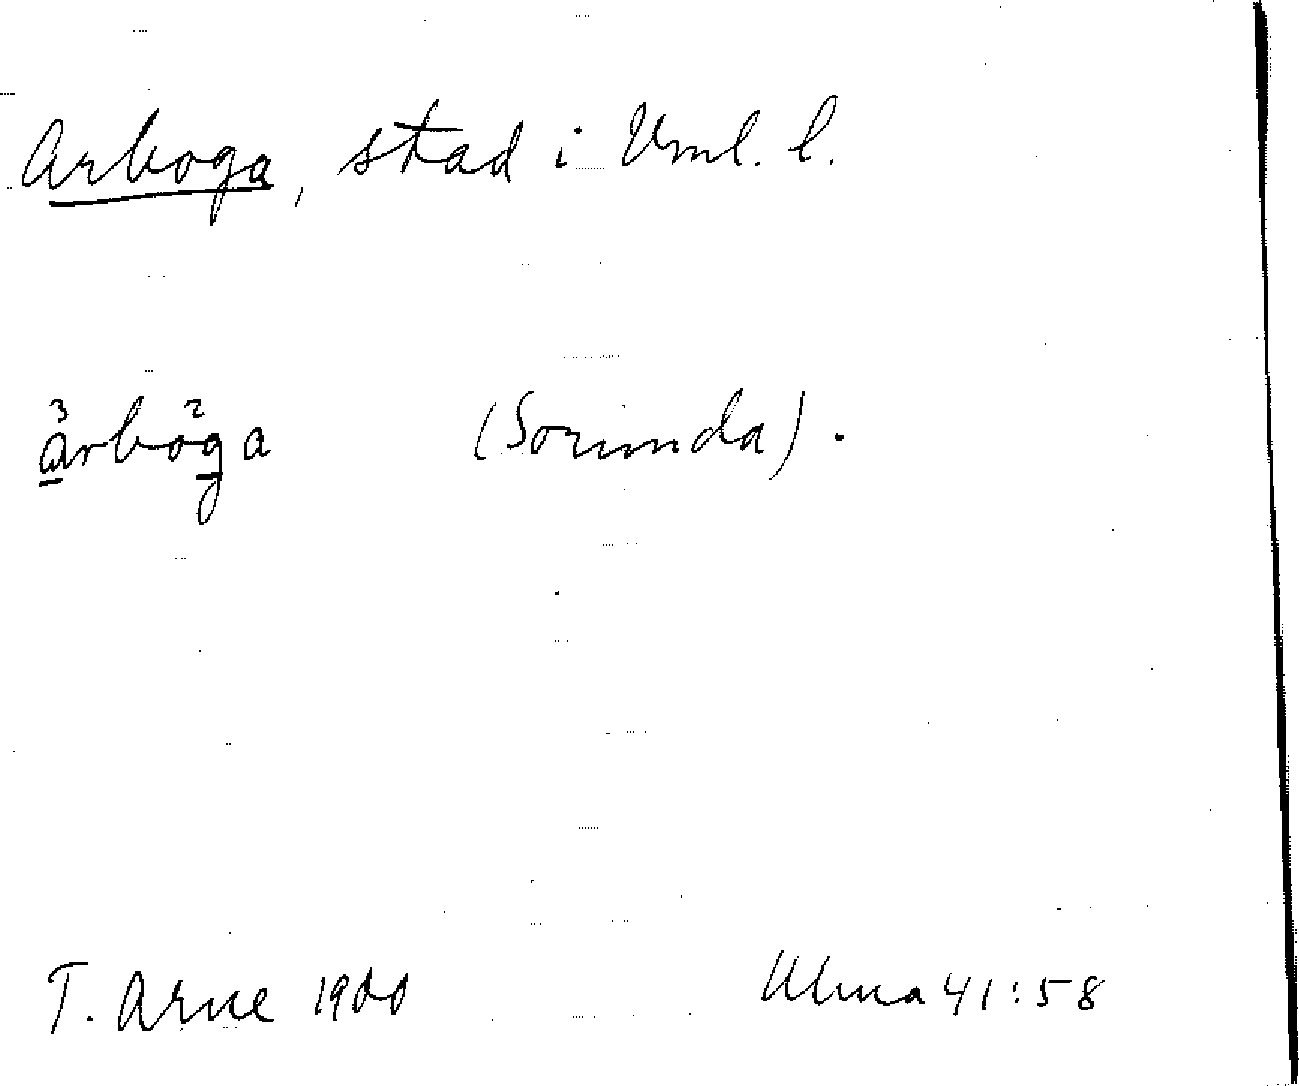 Arboga, stad i Vml. l.
a̲³rbo²g̲a (Sorunda).
T. Arne 1900 Ulma 41:58